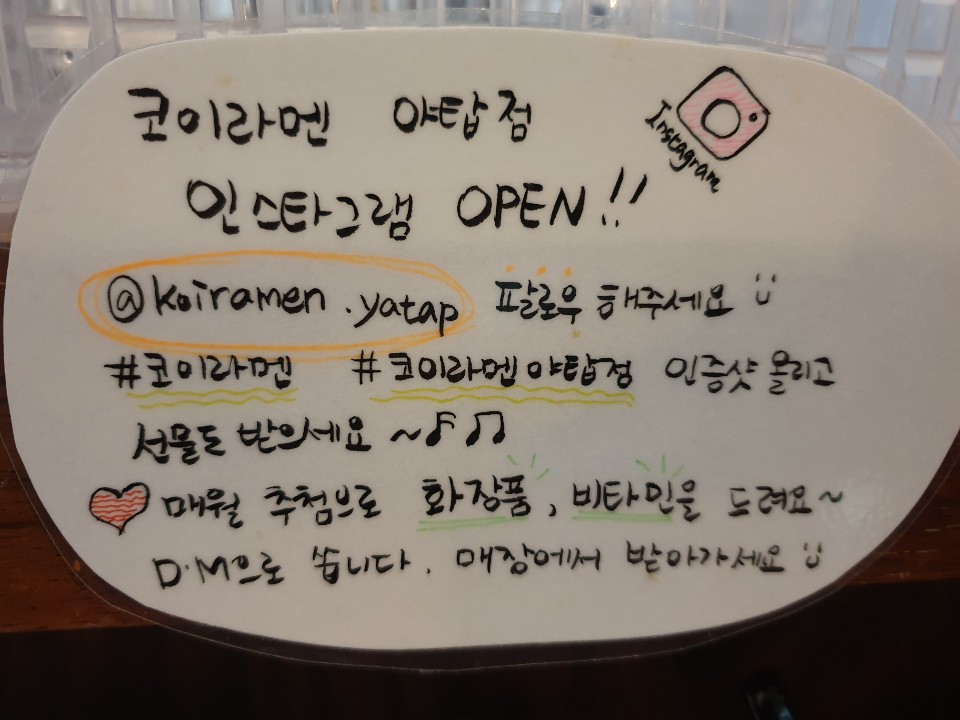 코이라멘 야탑점
Instagram
인스타그램 OPEN!!
@koiramen.yatap 팔로우 해주세요
#코이라멘 #코이라멘야탑점 인증샷 올리고
선물도 받으세요 ~♪ ♫
매월 추첨으로 화장품, 비타민을 드려요~
D.M으로 쏩니다. 매장에서 받아가세요